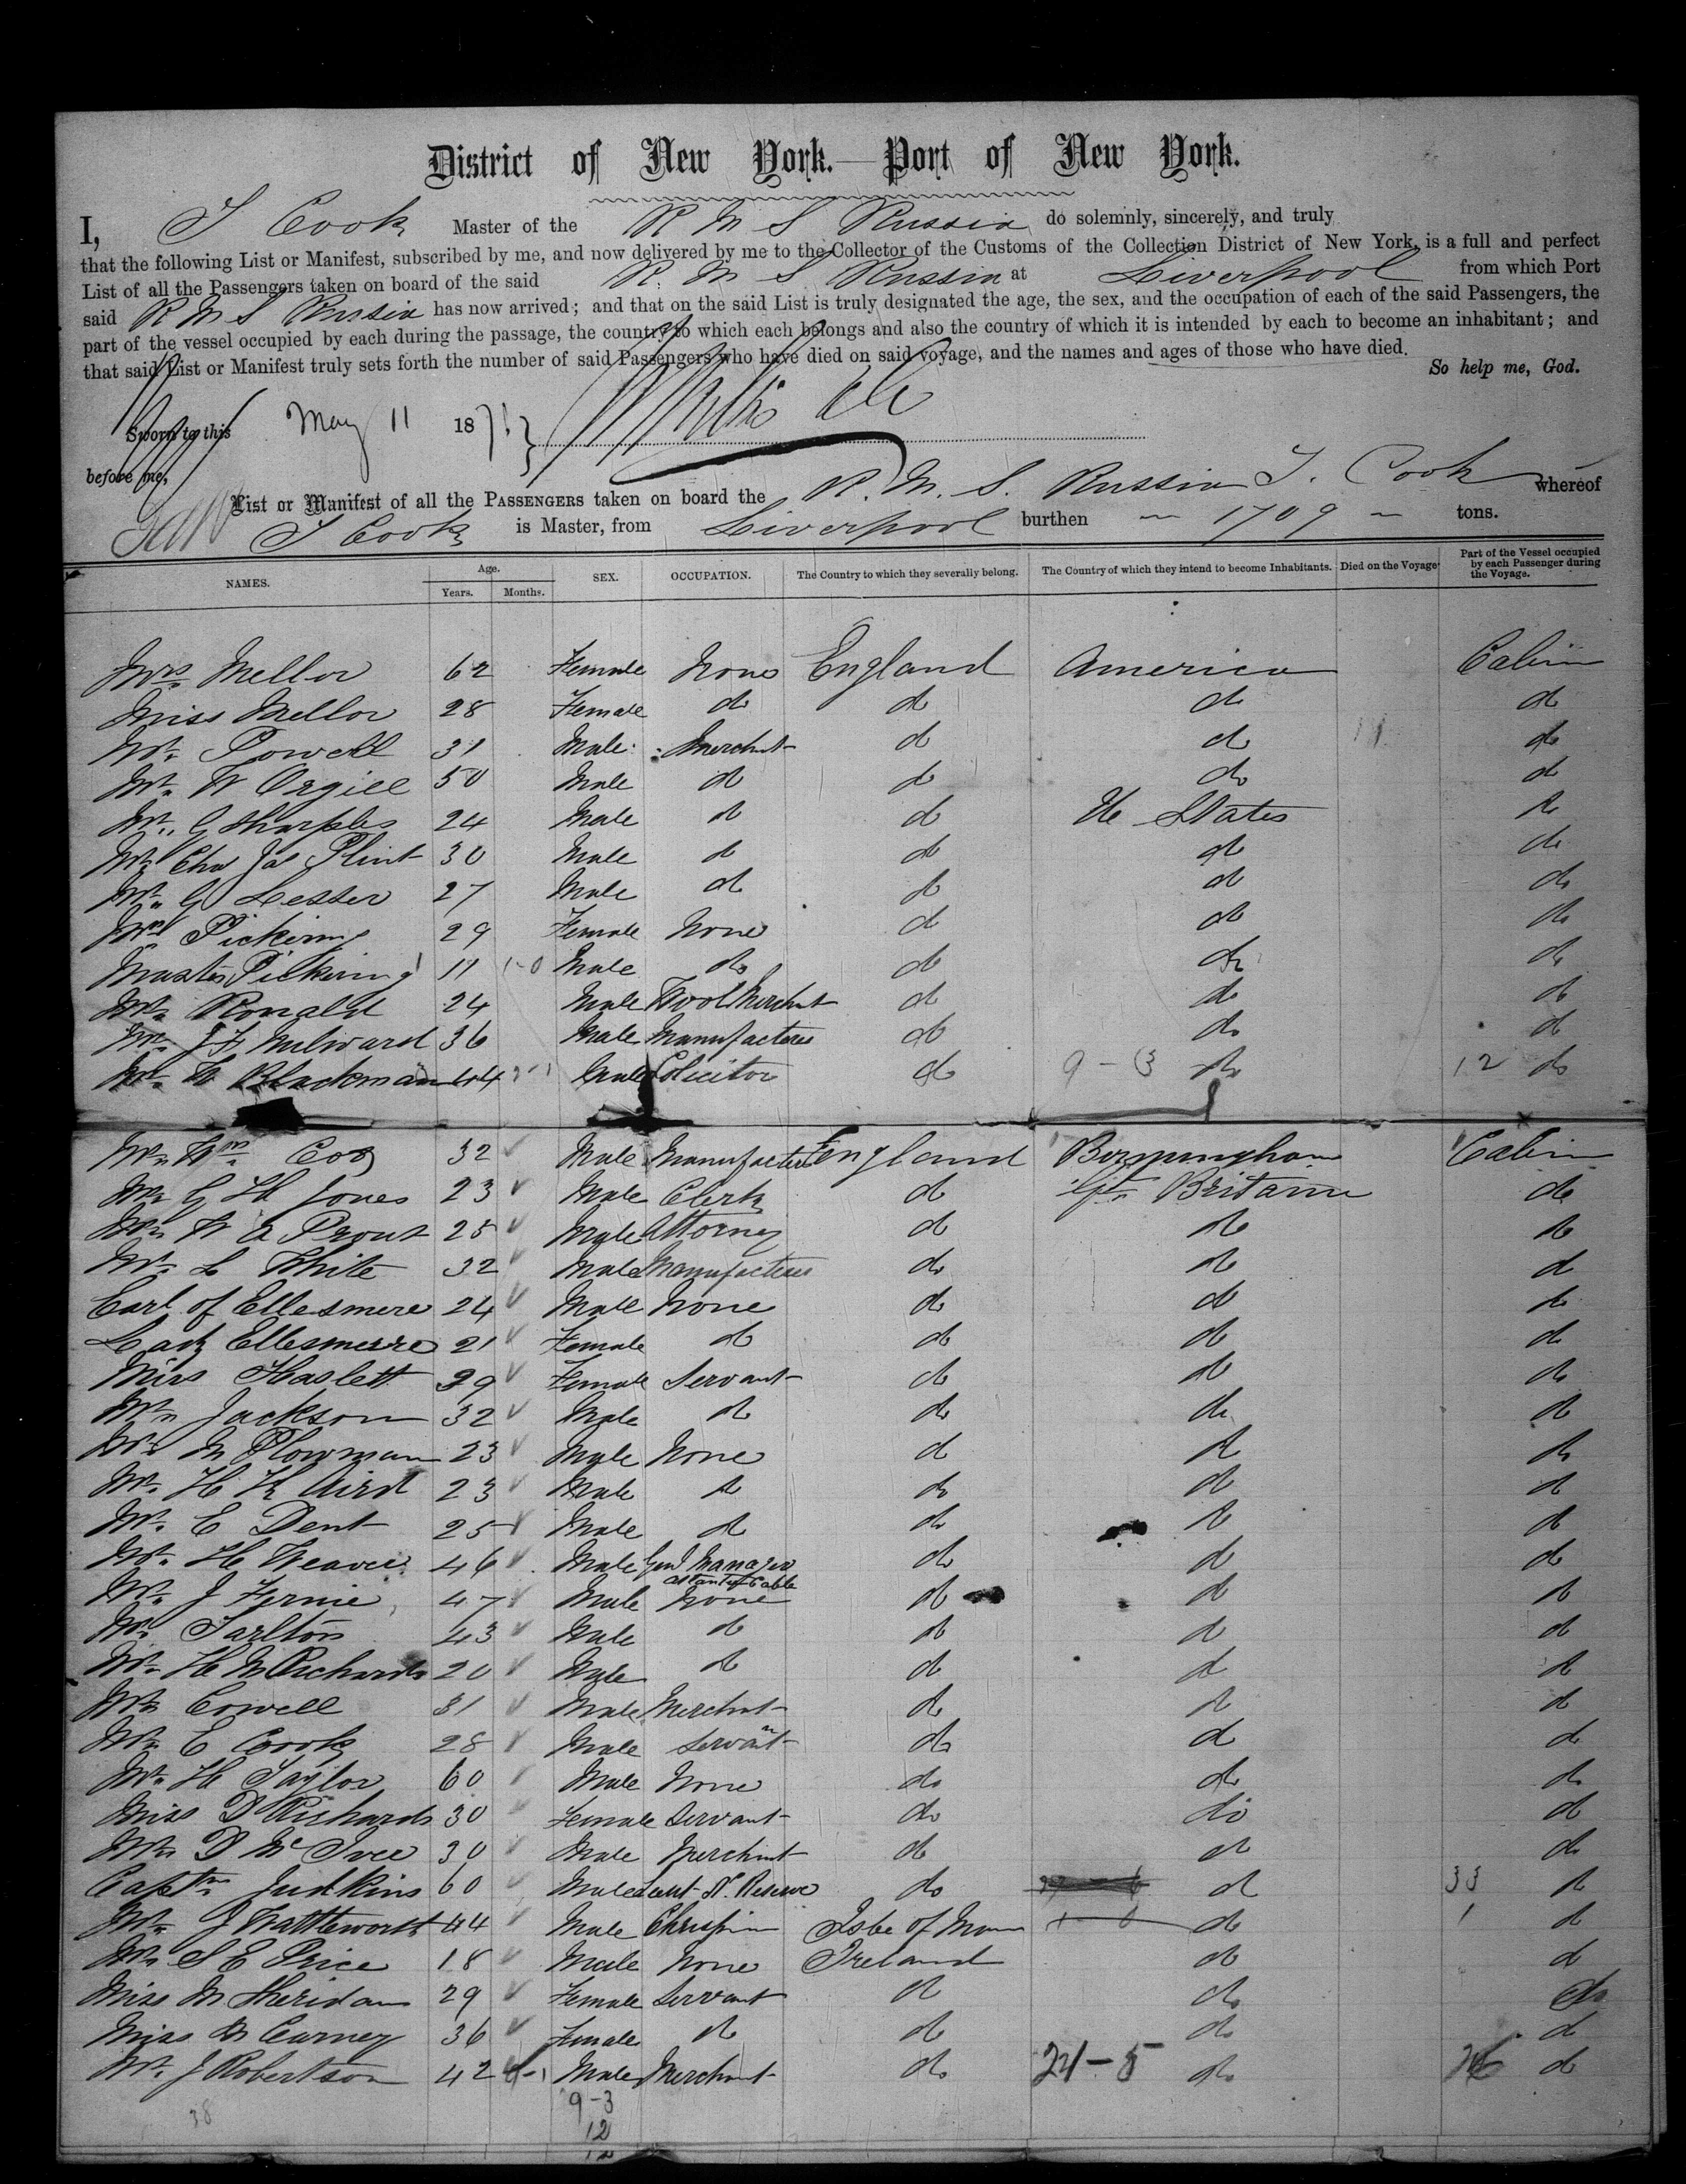 District of New York.—Port of New York.
I, T Cook Master of the R M S Russia do solemnly, sincerely, and truly
that the following List or Manifest, subscribed by me, and now delivered by me to the Collector of the Customs of the Collection District of New York, is a full and perfect
List of all the Passengers taken on board of the said R. M S Russia at Liverpool from which Port
said R M S Russia has now arrived; and that on the said List is truly designated the age, the sex, and the occupation of each of the said Passengers, the
part of the vessel occupied by each during the passage, the country to which each belongs and also the country of which it is intended by each to become an inhabitant; and
that said List or Manifest truly sets forth the number of said Passengers who have died on said voyage, and the names and ages of those who have died.
So help me, God.
Sworn to this May 11 1871
before me,
List or Manifest of all the PASSENGERS taken on board the R. M. S. Russia T. Cook whereof
T Cook is Master, from Liverpool burthen — 1709 — tons.
NAMES. Age. Years. Months. SEX. OCCUPATION. The Country to which they severally belong. The Country of which they intend to become Inhabitants. Died on the Voyage Part of the Vessel occupied by each Passenger during the Voyage.
Mrs Mellor 62 Female None England America Cabin
Miss Mellor 28 Female do do do do
Mr. Powell 31 Male Merchnt do do do
Mr. W Orgill 50 Male do do do do
Mr. G Sharples 24 Male do do Ue States do
Mr Chas Jas Plint 30 Male do do do do
Mr. G Lesser 27 Male do do do do
Mrs Pickering 29 Female None do do do
Master Pickering 11 Male do do do do
Mr. Ronald 24 Male Wool Merchnt do do do
Mr. J F Milward 36 Male Manufacturer do do do
Mr. W Blackman 44 Male Solicitor do 9-3 do 12 do
Mr. Wm. Cox 32 Male Manufacturer England Birmingham Cabin
Mr G H Jones 23 Male Clerk do Gt. Britain do
Mr W A Prout 25 Male Attorney do do do
Mr. L White 32 Male Manufacturer do do do
Earl of Ellesmere 24 Male None do do do
Lady Ellesmere 21 Female do do do do
Miss Haslett 29 Female Servant do do do
Mr Jackson 32 Male do do do do
Mr M Plowman 23 Male None do do do
Mr. H K Aird 23 Male do do do do
Mr. E Dent 25 Male do do do do
Mr. H Weaver 46 Male Genl Manager do do do
Mr. J Fernie 47 Male None do do do
Mr Tarlton 43 Male do do do do
Mr. H M Richards 20 Male do do do do
Mr Cowell 31 Male Merchnt do do do
Mr E Cook 28 Male Servant do do do
Mr. H Taylor 60 Male None do do do
Miss D Richards 30 Female Servant do do do
Mr D Mc Iver 30 Male Merchnt do do do
Captn Judkins 60 Male Lieut R. Reserve do do 33 do
Mr J Wattleworth 44 Male Isle of Man do 1 do
Mr S E Price 18 Male None Ireland do do
Miss M Sheridan 29 Female Servant do do do
Miss M Carney 36 Female do do do do
Mr. J Robertson 42 Male Merchant do 21-5 do 26 do
38 9-3
12